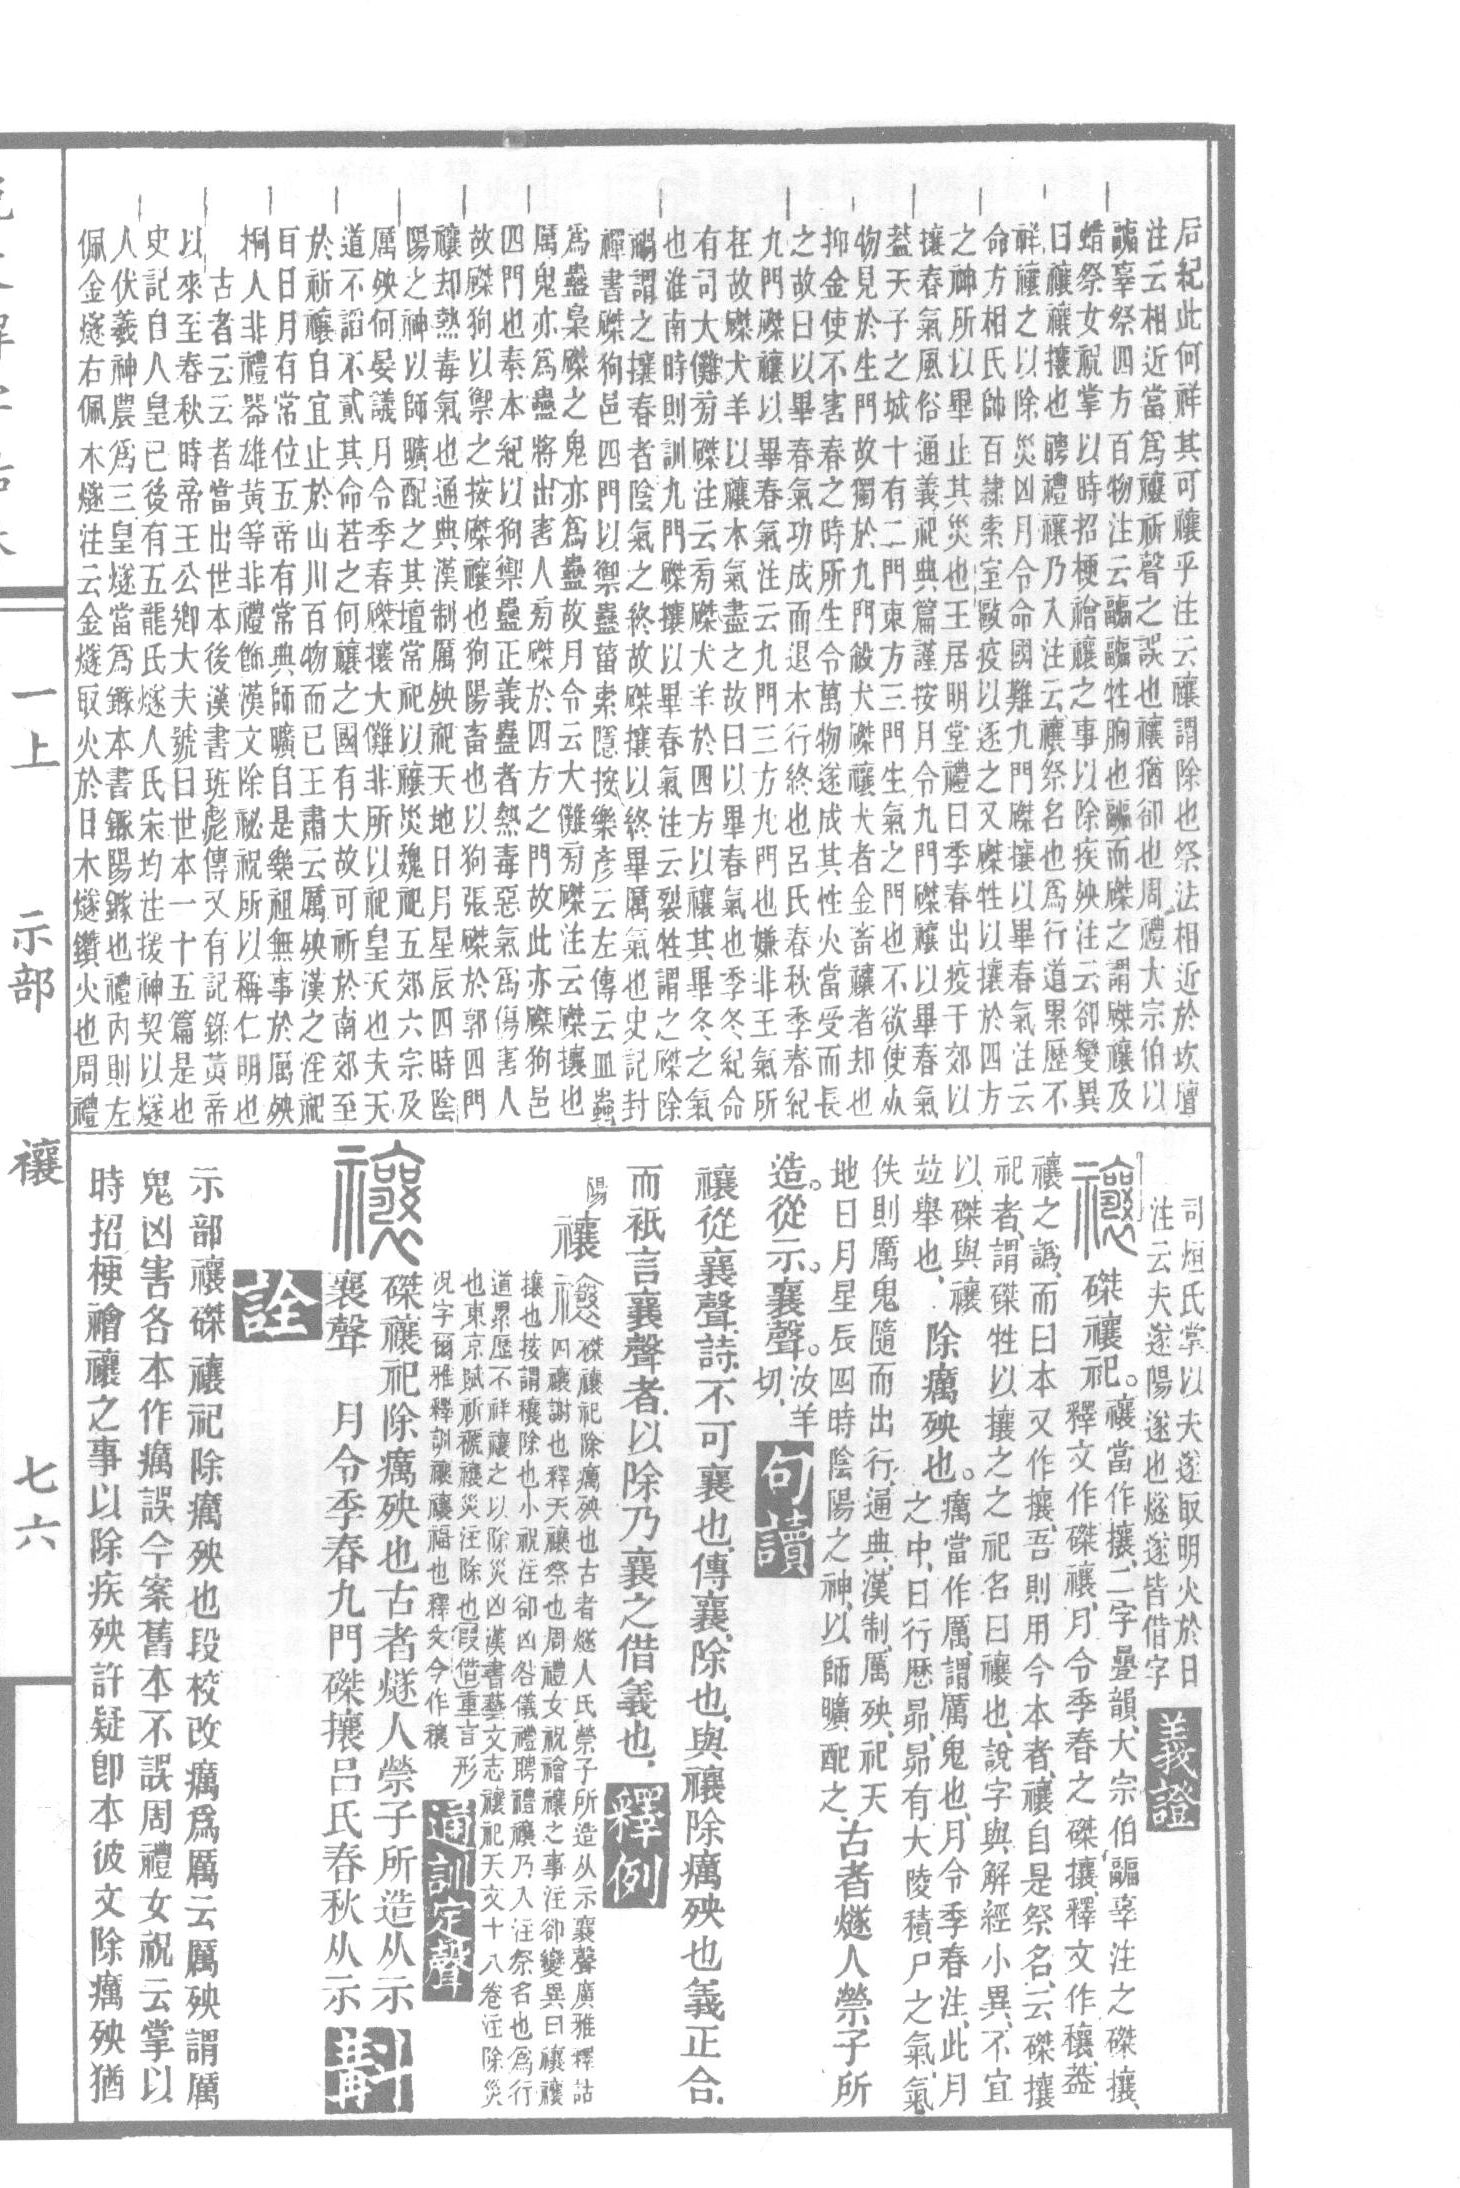 后紀此何祥其可禳乎注云禳謂除也祭法相近於坎壇
注云相近當爲禳祈聲之誤也禳猶卻也周禮大宗伯以
疈辜祭四方百物注云疈疈牲胸也疈而磔之謂磔禳及
蜡祭女祝掌以時招梗禬禳之事以除疾殃注云卻變異
曰禳禳攘也聘禮禳乃入注云禳祭名也爲行道累歷不
祥禳之以除災凶月令命國難九門磔攘以畢春氣注云
命方相氏帥百隸索室敺疫以逐之又磔牲以攘於四方
之神所以畢止其災也王居明堂禮曰季春出疫于郊以
攘春氣風俗通義祀典篇謹按月令九門磔禳以畢春氣
蓋天子之城十有二門東方三門生氣之門也不欲使从
物見於生門故獨於九門殺犬磔禳犬者金畜禳者却也
抑金使不害春之時所生令萬物遂成其性火當受而長
之故曰以畢春氣功成而退木行終也呂氏春秋季春紀
九門磔禳以畢春氣注云九門三方九門也嫌非王氣所
在故磔犬羊以禳木氣盡之故曰以畢春氣也季冬紀命
有司大儺旁磔注云旁磔犬羊於四方以禳其畢冬之氣
也淮南時則訓九門磔攘以畢春氣注云裂牲謂之磔除
禍謂之攘春者陰氣之終故磔攘以終畢厲氣也史記封
禪書磔狗邑四門以禦蠱菑索隱按樂彥云左傳云皿蟲
爲蠱梟磔之鬼亦爲蠱故月令云大儺旁磔注云磔攘也
厲鬼亦爲蠱將出害人旁磔於四方之門故此亦磔狗邑
四門也秦本紀以狗禦蠱正義蠱者熱毒惡氣爲傷害人
故磔狗以禦之按磔禳也狗陽畜也以狗張磔於郭四門
禳却熱毒氣也通典漢制厲殃祀天地日月星辰四時陰
陽之神以師曠配之其壇常祀以禳災魏祀五郊六宗及
厲殃何晏議月令季春磔攘大儺非所以祀皇天也夫天
道不諂不貳其命若之何禳之國有大故可祈於南郊至
於祈禳自宜止於山川百物而已王肅云厲殃漢之淫祀
日月有常位五帝有常典師曠自是樂祖無事於厲殃
桐人非禮器雄黃等非禮飾漢文除祕祝所以稱仁明也
古者云云者當出世本後漢書班彪傳又有記錄黃帝
以來至春秋時帝王公卿大夫號曰世本一十五篇是也
史記自人皇已後有五龍氏燧人氏宋均注援神契以燧
人伏羲神農爲三皇燧當爲鐆本書鐆陽鐆也禮內則左
佩金燧右佩木燧注云金燧取火於日木燧鑽火也周禮
司烜氏掌以夫遂取明火於日
注云夫遂陽遂也燧遂皆借字
義證
禳 磔禳祀。禳當作攘、二字疊韻、大宗伯疈辜注之磔攘、
釋文作磔禳、月令季春之磔攘、釋文作禳、蓋
禳之譌、而曰本又作攘、吾則用今本者、禳自是祭名、云磔攘
祀者、謂磔牲以攘之之祀名曰禳也、說字與解經小異、不宜
以磔與禳
竝舉也、
除癘殃也。癘當作厲、謂厲鬼也、月令季春注、此月
之中、日行歷昴、昴有大陵積尸之氣、氣
佚則厲鬼隨而出行、通典、漢制、厲殃、祀天
地日月星辰四時陰陽之神、以師曠配之、古者燧人禜子所
造。從示。襄聲。汝羊切、
句讀
禳從襄聲、詩、不可襄也、傳襄、除也、與禳除癘殃也義正合、
而衹言襄聲者、以除乃襄之借義也、
釋例
陽
禳 磔禳祀除癘殃也古者燧人氏禜子所造从示襄聲廣雅釋詁
四禳謝也釋天禳祭也周禮女祝禬禳之事注卻變異曰禳禳
攘也按謂禳除也小祝注卻凶咎儀禮聘禮禳乃入注祭名也爲行
道累歷不祥禳之以除災凶漢書藝文志禳祀天文十八卷注除災
也東京賦祈禠禳災注除也叚借重言形
况字爾雅釋訓禳禳福也釋文今作穰
通訓定聲
禳 磔禳祀除癘殃也古者燧人禜子所造从示
襄聲 月令季春九門磔攘呂氏春秋从示
斠
詮
示部禳磔禳祀除癘殃也段校改癘爲厲云厲殃謂厲
鬼凶害各本作癘誤今案舊本不誤周禮女祝云掌以
時招梗禬禳之事以除疾殃許疑卽本彼文除癘殃猶
一上
示部
禳
七六